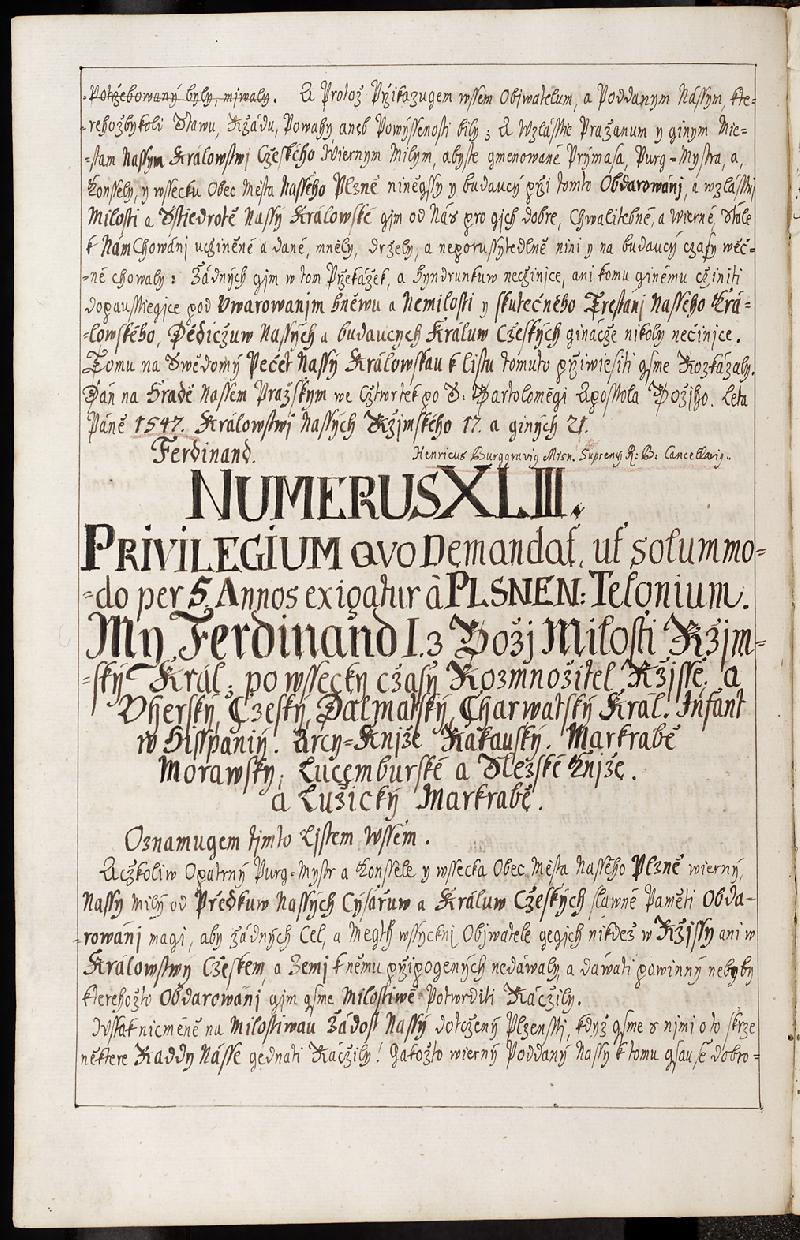 Potřebowaný byly, mjwaly. A Protož Přikazugem wssem Obywatelům, a Poddaným Nássým, kte=
=rehožbykoli Stawu, Ržádu, Powahy aneb Powýssenosti byli; A Wzlásstie Pražanum y giným Mie=
=stum Nassým Králowstwj Cžeského Wiernym Milým, abyste gmenowané Prýmasa, Purg=Mystra, a,
konssely, y wssecku Obec Města Nassého Plzně ninégssy y budaucý při tomto Obdarowánj, a wzlásstnj
Milosti a Sstiedrotě Nassý Králowské gjm od Nás pro gjch dobré, Chwalitebné, a wierné, Stále
k Nám Chowánj učziněné a dané, měly, držely, a neporussytedlně niní y na budaucý cžasy wěč=
=ně chowaly: Žádných gjm w tom Překážek, a hyndrunkuw nečinice, ani komu ginému cžiniti
dopausstiegjce pod Uwarowanjm hněwu a Nemilosti y skutečného Trestanj Nassého Krá=
=lowského, Dědiczuw Nassých a budaucých Králuw Cžeských ginácže nikoly nečinjce.
Tomu na Swědomý Pečeť Nassý Králowskau k listu tomuto přiwiesyti gsme Rozkázaly.
Dán na Hradě Nassem Pražskym we Cžtwrtek po S. Bartoloměgi Aposstola Božjho. Leta
Páně 1547. Králowstwj Nassých Ržjmského 17. a giných 21.
Ferdinand. Henricus Burggravig Misn. Supremg R: B: Cancellarig.
NUMERUS XLIII.
PRIVILEGIUM Qvo Demandat, ut solummo=
=do per 5 Annos exigatur à PLSNEN: Telonium.
My Ferdinand I. z Božj Milosti Ržjm=
=ský Král, po wssecky cžasy Rozmnožitel Ržjsse, a
Uherský, Cžeský, Dalmatský, Charwatský Král. Infant
w Hisspanij. Arcy=Knjže Rakauský. Markrabě
Morawský, Lucemburské a Slezské knjže.
a Lužický Markrabě.
Oznamugem tjmto Listem Wssěm.
Ačzkoliw Opatrný Purg=Mystr a konssele y wssecka Obec Města Nassého Plzně wierný,
Nassý milý od Předkuw Nassých Cýsařuw a Králuw Cžeských sławné Paměti Obda=
=rowánj magj, aby žádných Cel, a Megth wssyckni Obywatele gegich nikdež w Ržjssy ani w
Králowstwý Cžeském, a Zemj k němu přzipogených nedáwaly a dáwati powinný nebyly
kterehožto Obdarowánj gjm gsme Milostiwě Potwrditi Ráčžily.
Wssak nicméně na Milostiwau Žádost Nassý dotcžený Plzensstj, když gsme s njmi o to skrze
některe Raddy Násse gednati Ráčžily! Gakožto wierný Poddaný Nassý k tomu gsau se dobro=